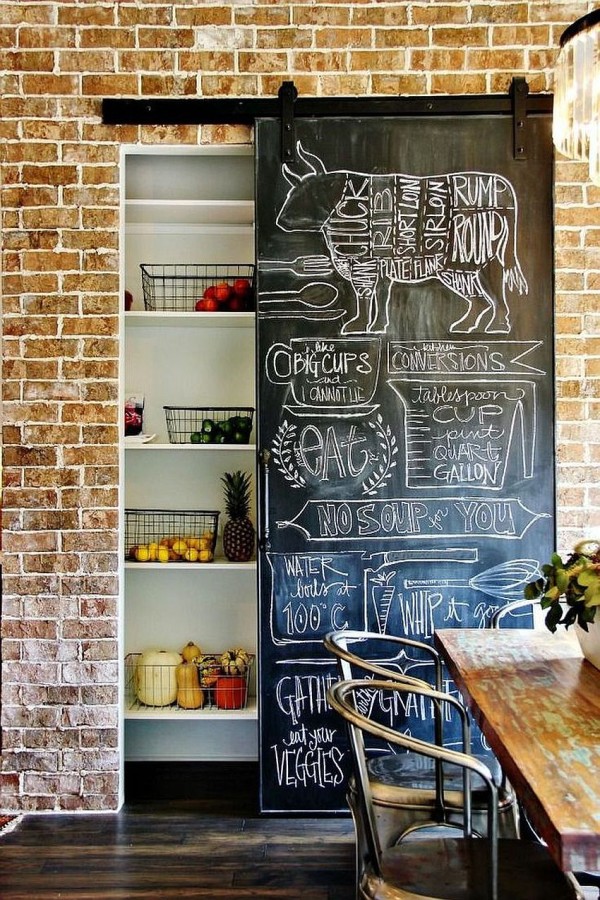 CHUCK
RIB
SHORT LOIN
SIRLOIN
RUMP
ROUND
SHANK
PLATE
FLANK
SHANK
i like
BIG CUPS
and
I CANNOT LIE
kitchen
CONVERSIONS
tablespoon
CUP
pint
QUART
GALLON
EAT
NO SOUP for YOU
WATER
boils at
100°C
WHIP it good
GATHER
eat your
VEGGIES